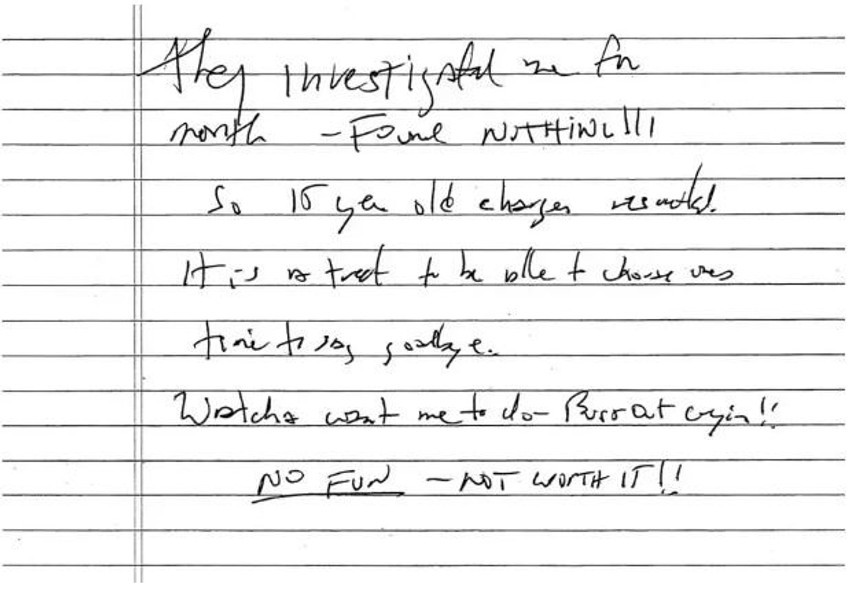 They investigated me for
month - Found NOTHING!!!
So 15 year old charges
It is a treat to be able to choose ones
time to say goodbye.
Watcha want me to do - Burst out cryin!!
NO FUN - NOT WORTH IT!!